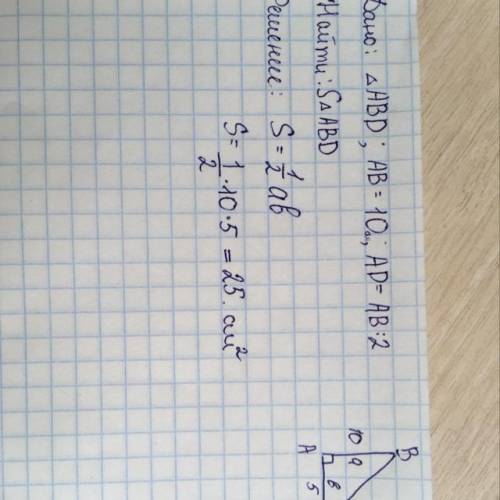 Дано: △ABD; AB = 10; AD = AB:2
Найти: S△ABD
Решение: S = 1/2 ab
S = 1/2 · 10 · 5 = 25 см²
B
10 a
A
b
5